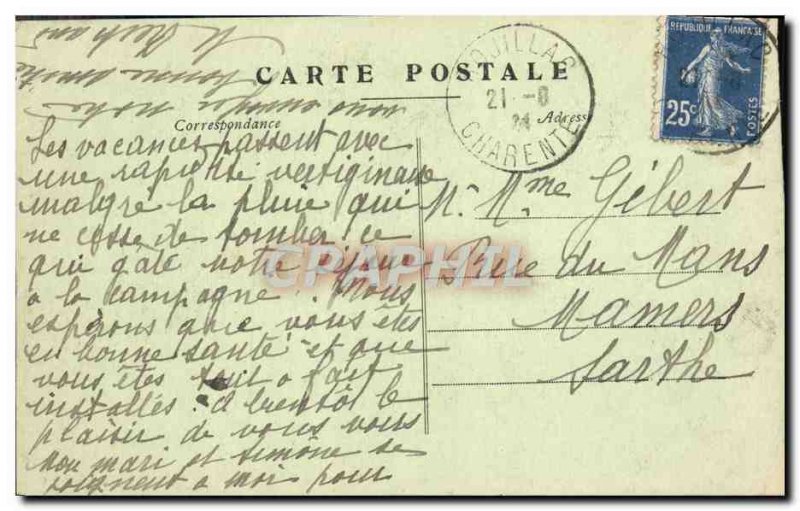 CARTE POSTALE
Correspondance
Adresse
ROUILLAC
21 -8
24
CHARENTE
REPUBLIQUE FRANÇAISE
25c
POSTES
Les vacances passent avec
une rapidité vertigineuse
malgré la pluie qui
ne cesse de tomber ce
qui gâte votre séjour
à la campagne. Nous
espérons que vous êtes
en bonne santé et que
vous êtes tout à fait
installés. A bientôt le
plaisir de vous
Mon mari et Simone se
joignent à moi pour
vous envoyer notre
bonne amitié
M. Mme Gébert
Rue du Mans
Mamers
Sarthe
CPAPHIL